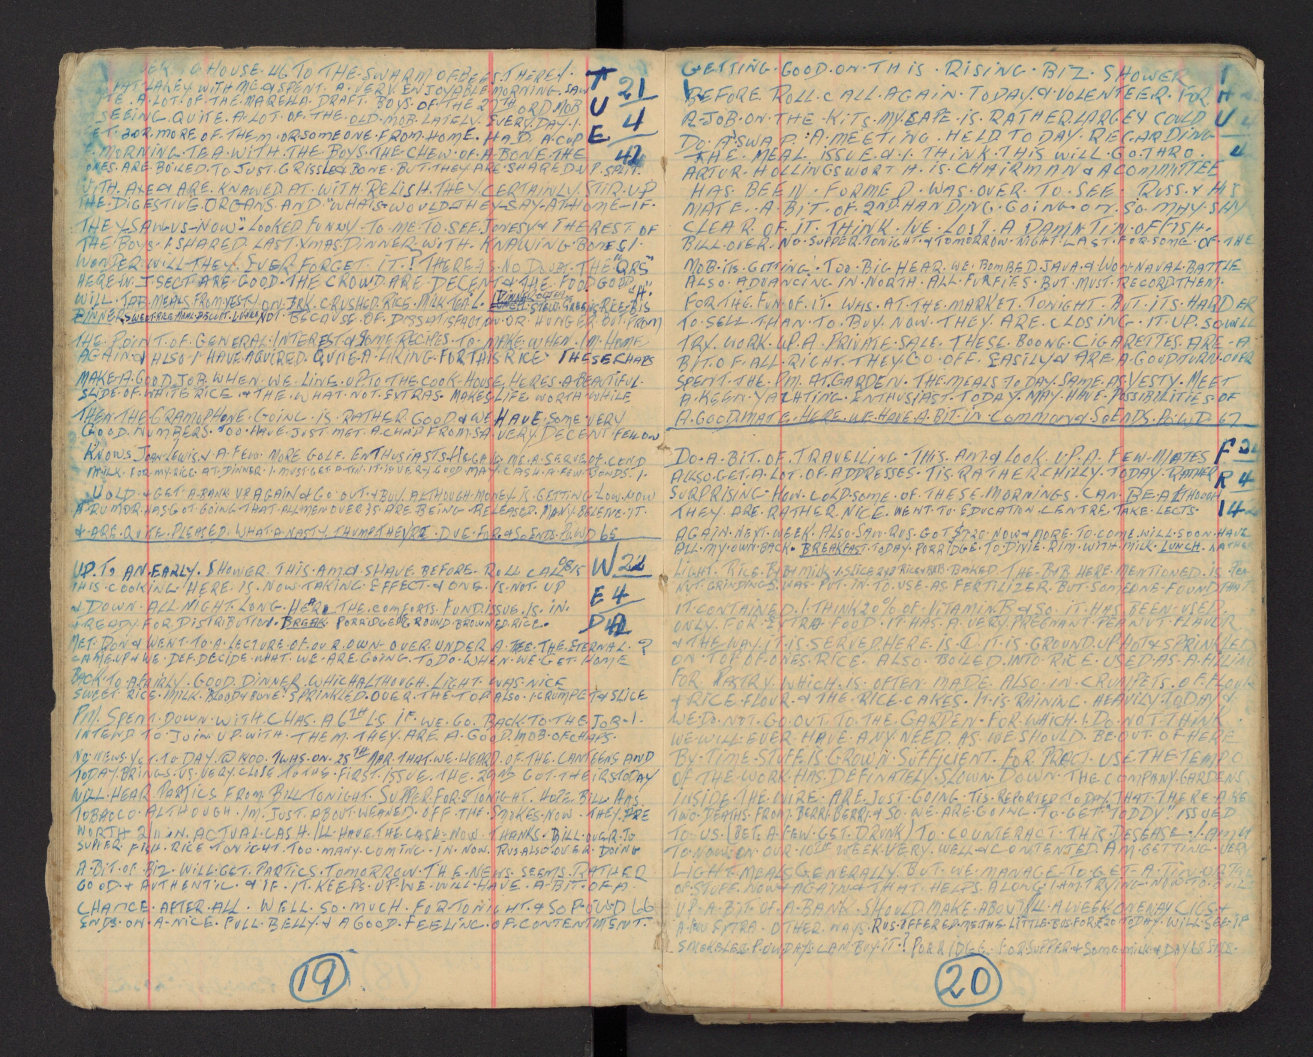 HOUSE. UP TO THE. SWARM OF BEES. THERE!. TUE 21/4/42
LAKEY. WITH ME & SPENT. A. VERY ENJOYABLE MORNING. SAW
A. LOT. OF. THE. DRAFT. BOYS. OF. THE 27TH OR D. MOB
SEEING. QUITE. A. LOT. OF. THE. OLD. MOB. LATELY. EVERY. DAY. I.
OR. MORE. OF. THEM. OR SOMEONE. FROM. HOME. HAD. A. CUP
MORNING. TEA. WITH. THE. BOYS. THE CHEW. OF. A. BONE. THE
ONES. ARE. BOILED. TO. JUST. GRISSLE & BONE. BUT. THEY. ARE. SHARED. UP. SPLIT.
WITH. AXE & ARE. KNAWED AT. WITH. RELISH. THEY. CERTAINLY. STIR. UP
THE. DIGESTIVE. ORGANS. AND. "WHATS. WOULD. THEY. SAY. AT. HOME. IF
THEY. SAW. US. NOW". LOOKED. FUNNY. TO. ME. TO. SEE. JONESY & THE REST OF
THE. BOYS. I SHARED. LAST. XMAS. DINNER. WITH. KNAWING. BONES!.
WONDER. WILL. THEY. EVER. FORGET. IT? THERE. IS. NO. DOUBT. THE "QRS"
HERE. IN. J. SECT. ARE. GOOD. THE. CROWD. ARE. DECENT & THE. FOOD GOOD
WILL. TAB. MEALS FROM. YEST. ON. BRK. CRUSHED. RICE. MILK. TEA. STEW. GREENS. RICE.
DINNER. NOT. BECAUSE. OF. DISSATISFACTION. OR. HUNGER. BUT. FROM
THE. POINT. OF. GENERAL. INTEREST & SOME RECIPES. TO. MAKE. WHEN. IM. HOME
AGAIN & ALSO. I HAVE. AQUIRED. QUITE. A. LIKING. FOR THIS RICE. THESE CHAPS
MAKE. A. GOOD. JOB. WHEN. WE. LINE. UP. TO THE COOK. HOUSE. HERES. A BEAUTIFUL.
SLIDE. OF. WHITE RICE & THE. WHAT. NOT. EXTRAS. MAKES LIFE. WORTH. WHILE
THEN THE. GRAMOPHONE. GOING. IS. RATHER. GOOD & WE HAVE. SOME. VERY
GOOD. NUMBERS. TOO. HAVE. JUST MET. A CHAP FROM SA. VERY DECENT FELLOW
KNOWS. JOHN LEWIS. & A. FEW. MORE. GOLF. ENTHUSIASTS. HE GAVE. ME. A. SERVE. OF. COND
MILK. FOR MY RICE. AT. DINNER. I. MUST GET A TIN. IT IS VERY GOOD. MAY. CASH. A. FEW. BONDS. I.
HOLD. & GET. A. BANK UP AGAIN & GO. OUT. & BUY. ALTHOUGH. MONEY. IS. GETTING LOW. NOW
A RUMOR. HAS GOT GOING THAT. ALL MEN OVER 35. ARE. BEING. RELEASED. MANY. BELIEVE. IT.
& ARE. QUITE. PLEASED. WHAT. A. NASTY. THUMP. THEY'RE. DUE. FOR & SO ENDS. P.O.W D 65
UP. TO. AN. EARLY. SHOWER. THIS AM & SHAVE. BEFORE. ROLL CALL WED 22/4/42
THIS. COOKING. HERE. IS. NOW. TAKING. EFFECT. & ONE. IS. NOT. UP
& DOWN. ALL NIGHT. LONG. HEAR. THE. COMFORTS. FUND. ISSUE. IS. IN.
& READY. FOR. DISTRIBUTION. BREAK. PORRIDGE. ROUND. BROWNED. RICE.
MET. DON & WENT. TO. A. LECTURE. OF. OUR. OWN. OVER. UNDER A. TREE. THE. ETERNAL. ?
CAME. UP & WE. DEF. DECIDE. WHAT. WE. ARE. GOING. TO DO. WHEN. WE GET. HOME
BACK. TO. A. FAIRLY. GOOD. DINNER. WHICH ALTHOUGH. LIGHT. WAS. NICE
SWEET. RICE. MILK. BLOOD & BONE. SPRINKLED. OVER. THE. TOP. ALSO. 1. CRUMPET & SLICE
P.M. SPENT. DOWN. WITH. CHAS. A 6TH LS. IF. WE. GO. BACK. TO. THE. JOB. I.
INTEND. TO. JOIN. UP. WITH. THEM. THEY. ARE. A. GOOD. MOB. OF CHAPS.
NO. NEWS. YET. TO DAY. @ 1400. TWAS. ON. 25TH MAR. THAT. WE. HEARD. OF. THE. CANTEENS AND
TODAY. BRINGS. US. VERY. CLOSE. TO THE. FIRST. ISSUE. THE. GOT THEIRS TODAY
WILL. HEAR. PARTICS. FROM. BILL TONIGHT. SUPPER. FOR. 8. TONIGHT. HOPE. BILL. HAS.
TOBACCO. ALTHOUGH. IM. JUST. ABOUT. WEANED. OFF. THE. SMOKES. NOW. THEY. ARE
WORTH IN. ACTUAL. CASH. ILL HAVE. THE CASH. NOW. THANKS. BILL. OVER. TO
SUPPER. FRIED. RICE. TONIGHT. TOO. MANY. COMING. IN. NOW. RUS. ALSO. OVER. DOING
A. BIT. OF. BIZ. WILL. GET. PARTICS. TOMORROW. THE. NEWS. SEEMS. RATHER
GOOD & AUTHENTIC & IF. IT. KEEPS. UP. WE. WILL. HAVE. A. BIT OF A.
CHANCE. AFTER. ALL. WELL. SO. MUCH. FOR TONIGHT. & SO P.O.W D 66
ENDS. ON. A. NICE. FULL. BELLY. & A GOOD. FEELING. OF. CONTENTMENT.
19
GETTING. GOOD. ON. THIS. RISING. BIZ. SHOWER
BEFORE. ROLL CALL. AGAIN. TODAY. & VOLENTEER. FOR
R. JOB. ON. THE. KITS. MY. IS. RATHER LARGEY COULD
DO. A SWAP. A. MEETING. HELD. TO DAY. REGARDING
THE. MEAL. ISSUE. & I. THINK. THIS. WILL. GO. THRO.
ARTUR. HOLLINGSWORTH. IS. CHAIRMAN & A COMMITTEE
HAS. BEEN. FORMED. WAS. OVER. TO. SEE. RUSS. & HIS
MATE. A. BIT. OF. 2ND HANDING. GOING. ON. SO. MAY. SHY
CLEAR. OF. IT. THINK. IVE. LOST. A. DAMN TIN OF FISH.
BILL. OVER. NO. SUPPER. TONIGHT. & TOMORROW. NIGHT. LAST. FOR SOME. OF. THE
MOB. ITS. GETTING. TOO. BIG HEAR. WE. BOMBED. JAVA. & WON NAVAL. BATTLE
ALSO. ADVANCING. IN NORTH. ALL. FURFIES. BUT. MUST. RECORD THEM.
FOR THE FUN. OF. IT. WAS. AT. THE. MARKET. TONIGHT. BUT. ITS. HARDER
TO. SELL. THAN. TO. BUY. NOW. THEY. ARE. CLOSING. IT. UP. SO WILL
TRY. WORK. UP. A. PRIVATE. SALE. THESE. BOONG. CIGARETTES. ARE. A
BIT. OF. ALL. RIGHT. THEY. GO. OFF. EASILY & ARE. A. GOOD TURN. OVER
SPENT. THE. PM. AT. GARDEN. THE. MEALS TODAY. SAME. AS. YESTY. MEET
A. KEEN. YACHTING. ENTHUSIAST. TODAY. MAY. HAVE. POSSIBILITIES. OF
A. GOOD. MATE. HERE. WE. HAVE. A. BIT. IN. COMMON & SO ENDS. P.O.W D 67
DO. A. BIT. OF. TRAVELLING. THIS. AM & LOOK. UP. A. FEW. MATES FRI 24/4/42
ALSO. GET. A. LOT. OF. ADDRESSES. TIS. RATHER. CHILLY. TODAY. RATHER
SURPRISING. HOW. COLD. SOME. OF. THESE. MORNINGS. CAN. BE. ALTHOUGH
THEY. ARE. RATHER. NICE. WENT. TO. EDUCATION. CENTRE. TAKE. LECTS.
AGAIN. NEXT. WEEK. ALSO. SAW. RUS. GOT $1.20 NOW & MORE. TO. COME. WILL. SOON. HAVE
ALL. MY. OWN. BACK. BREAKFAST. TODAY. PORRIDGE. TO. DIXIE. RIM. WITH. MILK. LUNCH. RATHER
LIGHT. RICE. B&B MILK. & SLICE & RICE B&B. BAKED. THE. B&B. HERE. MENTIONED. IS. PEA
NUT. GRINDINGS. WAS. PUT. IN. TO. USE. AS. FERTILIZER. BUT. SOMEONE. FOUND THAT
IT. CONTAINED. I THINK 20% OF. VITAMIN. B & SO. IT. HAS. BEEN. USED.
ONLY. FOR. EXTRA. FOOD. IT. HAS. A. VERY. PREGNANT. PEANUT. FLAVOR
& THE. WAY. IT. IS. SERVED. HERE. IS. IT. IS. GROUND. UP. HOT & SPRINKLED
ON. TOP. OF. ONES. RICE. ALSO. BOILED. INTO. RICE. USED. AS. A. FILLING
FOR. PASTRY. WHICH. IS. OFTEN. MADE. ALSO. IN. CRUMPETS. OF. FLOUR
& RICE. FLOUR. & THE. RICE. CAKES. IT. IS. RAINING. HEAVILY. TODAY &
WE DO. NOT. GO. OUT. TO. THE. GARDEN. FOR. WHICH. I. DO. NOT. THINK.
WE. WILL. EVER. HAVE. ANY. NEED. AS. WE. SHOULD. BE. OUT. OF. HERE
BY. TIME. STUFF. IS. GROWN. SUFFICIENT. FOR. PRACT. USE. THE TEMPO
OF. THE. WORK. HAS. DEFINATELY. SLOWN. DOWN. THE. COMPANY. GARDENS
INSIDE. THE. WIRE. ARE. JUST. GOING. TIS. REPORTED. TO DAY. THAT. THERE. ARE
TWO. DEATHS. FROM. BERRI. BERRI. & SO. WE. ARE. GOING. TO. GET "TODDY" ISSUED
TO. US. (BET. A. FEW. GET. DRUNK) TO. COUNTERACT. THIS. DESEASE. I. AM.
TO. NOW. ON. OUR. 10TH WEEK. VERY. WELL & CONTENTED. AM. GETTING. VERY
LIGHT. MEALS. GENERALLY. BUT. WE. MANAGE. TO. GET. A. TIN. OR. TWO
OF. STUFF. NOW & AGAIN & THAT. HELPS. ALONG. I AM TRYING. NOW TO. BUILD
UP. A. BIT. OF. A. BANK. SHOULD. MAKE. ABOUT. A WEEK. ON. MY CIGS &
A. FEW. EXTRA. OTHER. WAYS. RUS. OFFERED. ME THE. LITTLE. BUS. FOR TODAY. WILL. SEE. IF
DAYS. CAN. BUY. IT.? PORRIDGE. FOR SUPPER & SOME. MILK & DAY 68 ENDS.
20